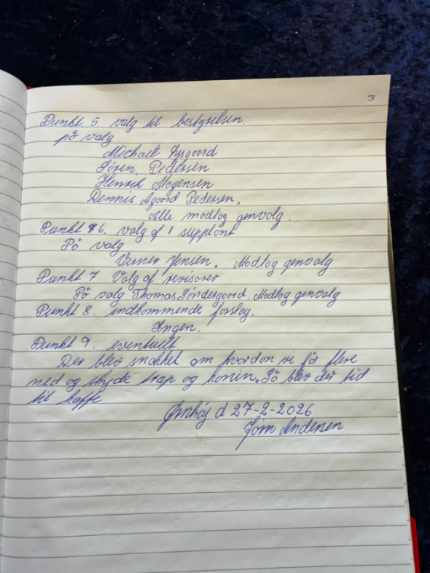 3
Punkt 5 valg til bestyrelsen
på valg
Michael Rygaard
Søren Pedersen
Henrik Mogensen
Dennis Agaard Pedersen,
alle modtog genvalg
Punkt 6. valg af 1 suppleant
På valg
Verner Jensen, Modtog genvalg
Punkt 7 Valg af revisorer
På valg Thomas Søndergaard, Modtog genvalg
Punkt 8. indkommende forslag.
Ingen.
Punkt 9. eventuelt
Der blev snakket om hvordan vi får flere
med og skyde trap og kanin. Så blev det tid
til kaffe
Ørnhøj d 27-2-2026
Jørn Andersen